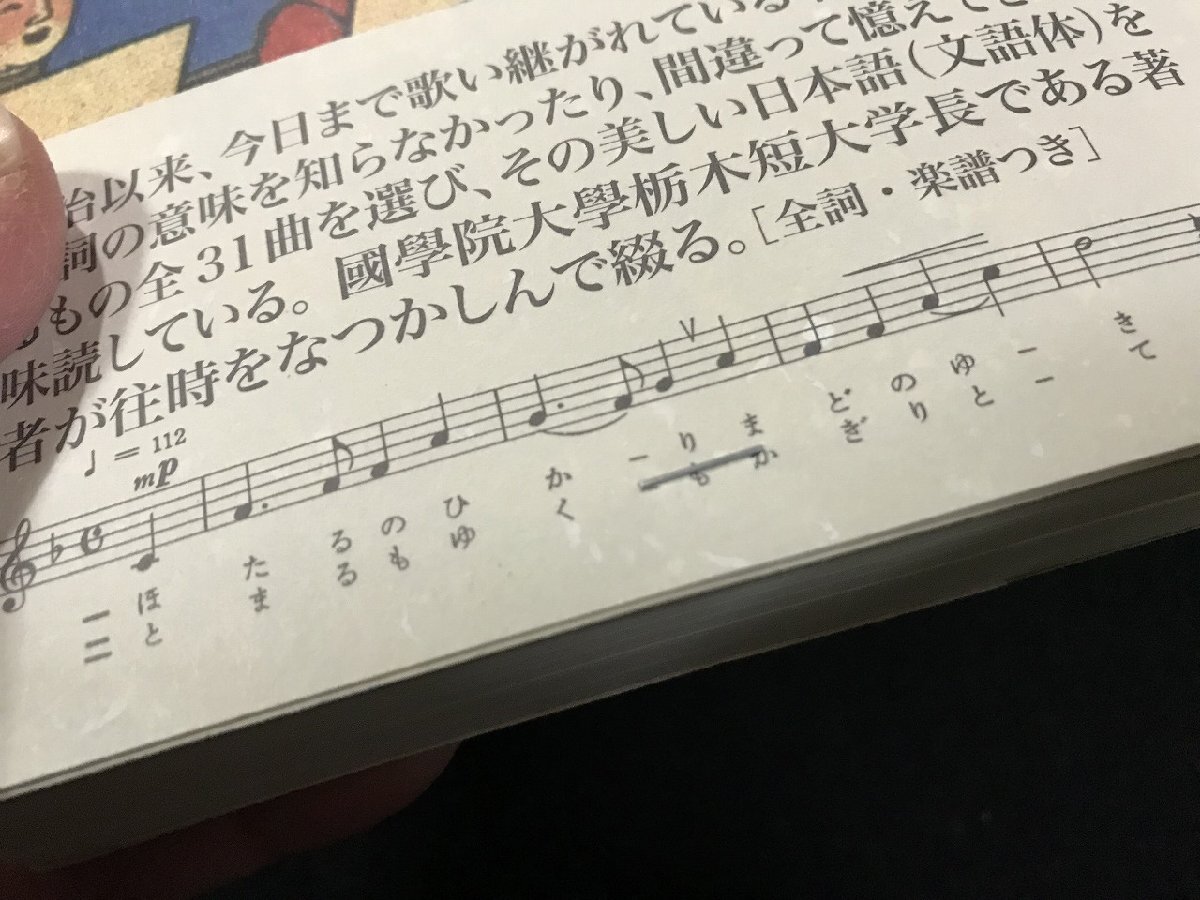 治以来、今日まで歌い継がれている
詞の意味を知らなかったり、間違って憶えて
もの全31曲を選び、その美しい日本語(文語体)を
味読している。國學院大學栃木短大学長である著
者が往時をなつかしんで綴る。[全詞・楽譜つき]
♩=112
mp
一 ほ たるのひ かーりま どのゆー き
二 と まるもゆ くもか ぎりとー て